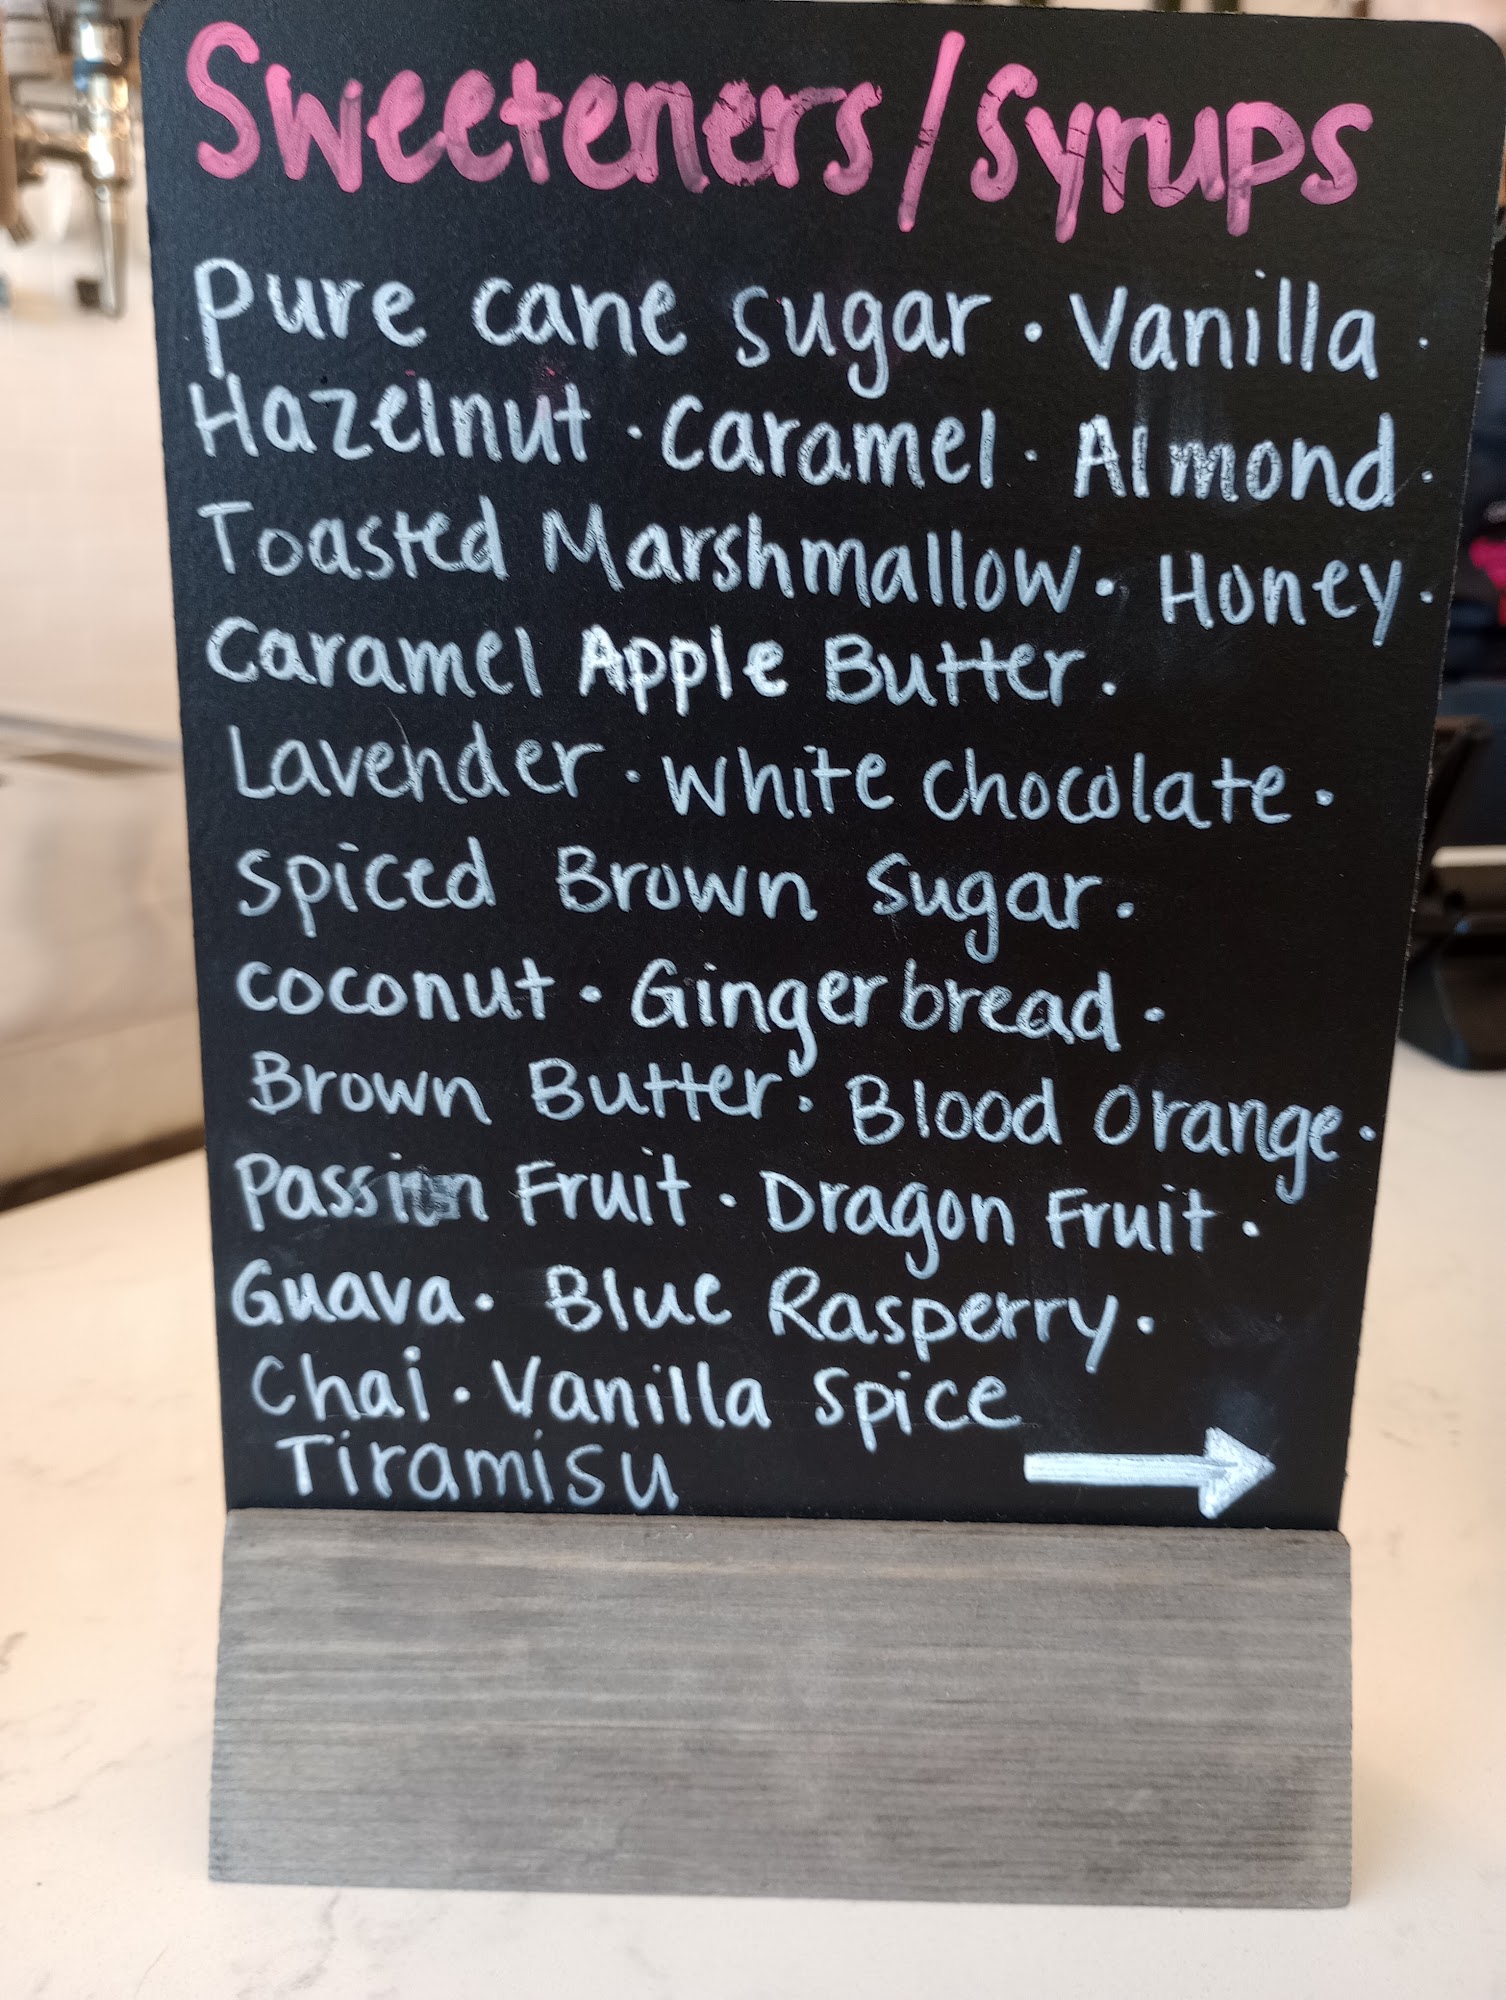 Sweeteners/Syrups
Pure cane sugar · Vanilla ·
Hazelnut · Caramel · Almond ·
Toasted Marshmallow · Honey ·
Caramel Apple Butter ·
Lavender · White Chocolate ·
Spiced Brown Sugar ·
Coconut · Gingerbread ·
Brown Butter · Blood Orange ·
Passion Fruit · Dragon Fruit ·
Guava · Blue Rasperry ·
Chai · Vanilla Spice
Tiramisu